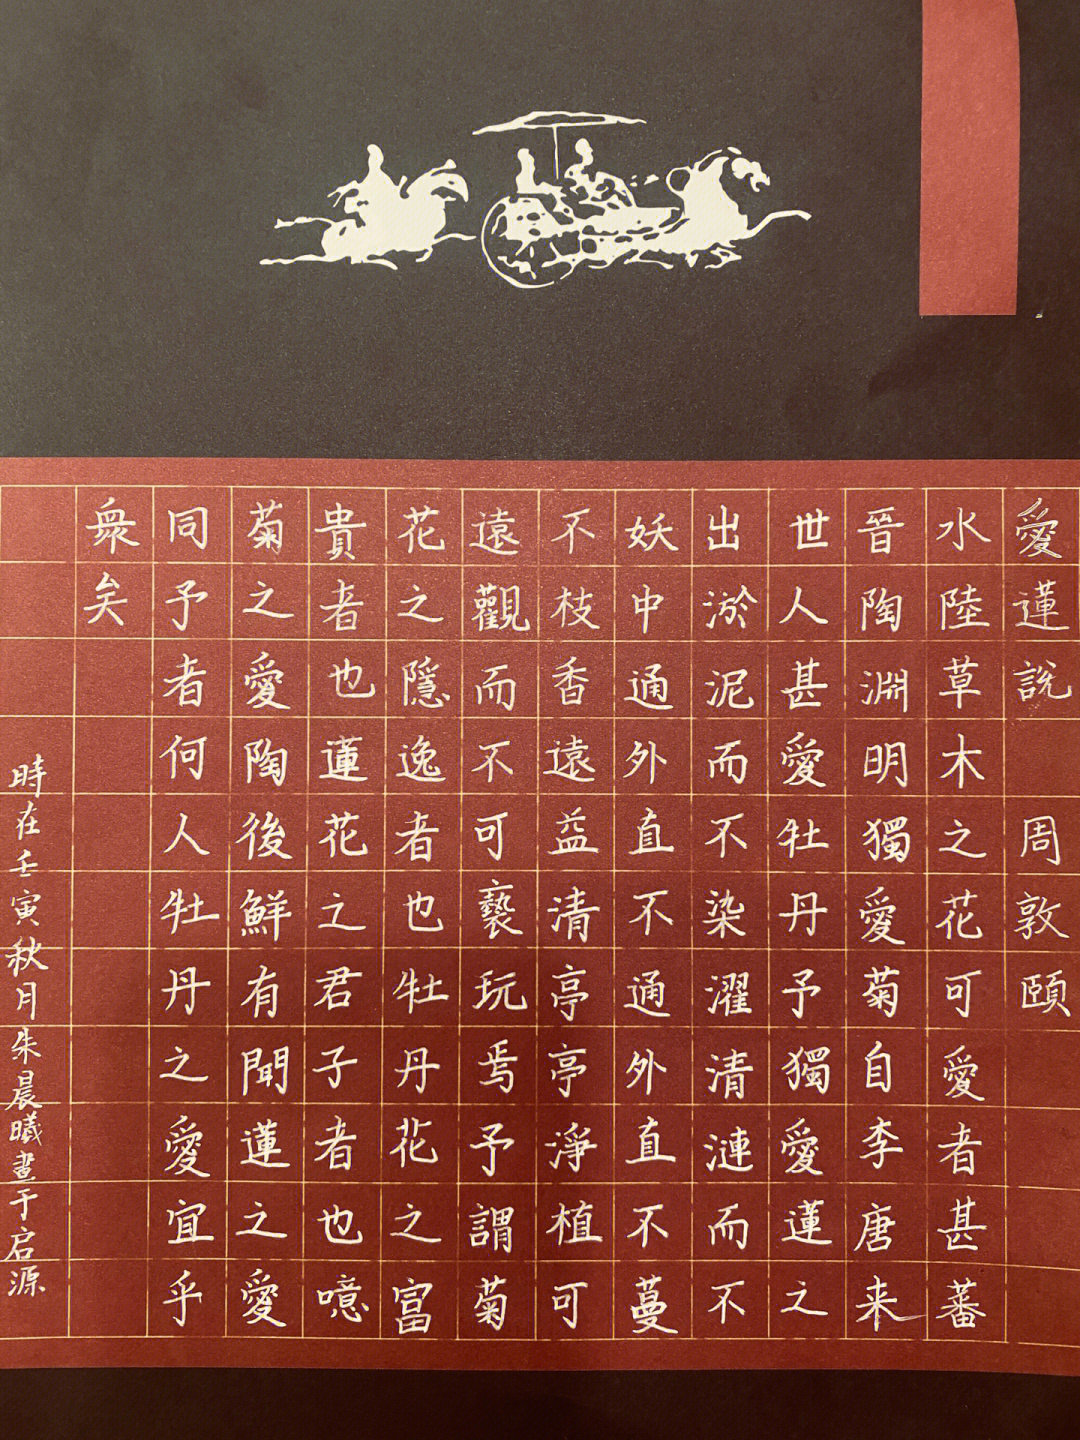 愛蓮說 周敦頤
水陸草木之花可愛者甚蕃
晉陶淵明獨愛菊自李唐来
世人甚愛牡丹予獨愛蓮之
出淤泥而不染濯清漣而不
妖中通外直不通外直不蔓
不枝香遠益清亭亭淨植可
遠觀而不可褻玩焉予謂菊
花之隱逸者也牡丹花之富
貴者也蓮花之君子者也噫
菊之愛陶後鮮有聞蓮之愛
同予者何人牡丹之愛宜乎
衆矣
時在壬寅秋月朱晨曦書于启源